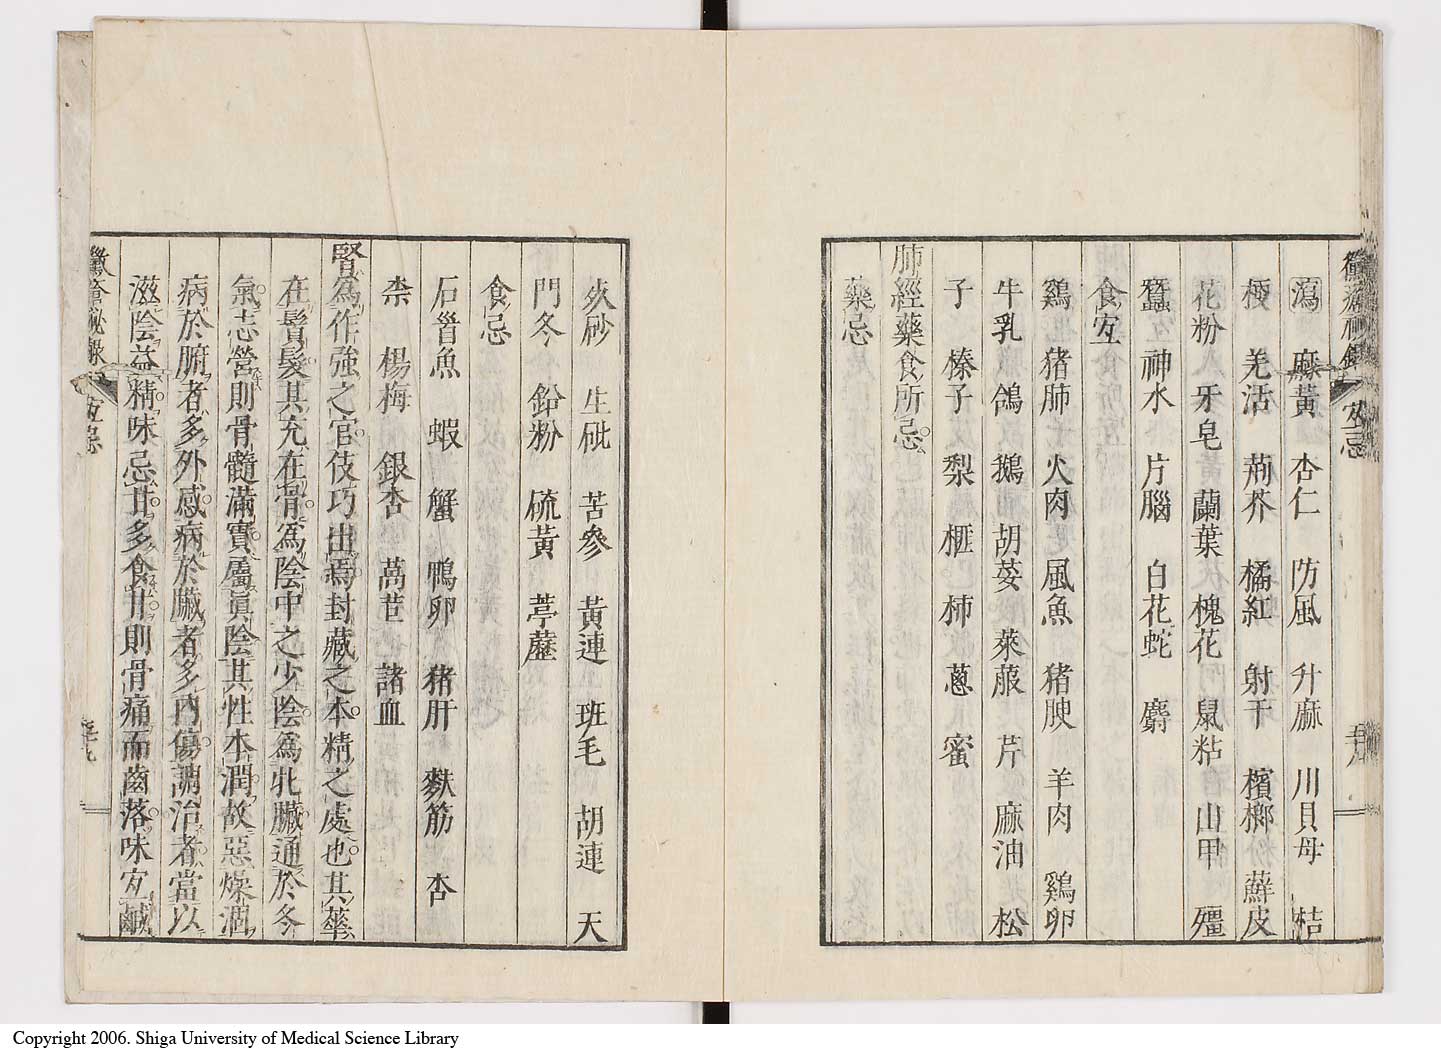 黴瘡秘錄 宐忌
瀉 麻黃 杏仁 防風 升麻 川貝母 桔
梗 羌活 荊芥 橘紅 射干 檳榔 蘚皮
花粉 牙皂 蘭葉 槐花 鼠粘 山甲 殭
蠶 神水 片腦 白花蛇 麝
食宐
鷄 猪肺 火肉 風魚 猪腴 羊肉 鷄卵
牛乳 鴿 鵝 胡荽 萊菔 芹 麻油 松
子 榛子 梨 榧 柿 蔥 蜜
肺經藥食所忌
藥忌
火砂 生砒 苦參 黃連 班毛 胡連 天
門冬 鉛粉 硫黃 葶藶
食忌
石首魚 蝦 蟹 鴨卵 猪肝 麩筋 杏
柰 楊梅 銀杏 萵苣 諸血
腎爲作強之官伎巧出焉封藏之本精之處也其華
在鬢髮其充在骨爲陰中之少陰爲牝臟通於冬
氣志營則骨髓滿實屬眞陰其性本潤故惡燥涸
病於腑者多外感病於臟者多內傷調治者當以
滋陰益精味忌甘多食甘則骨痛而齒落味宐鹹
黴瘡秘錄 宐忌